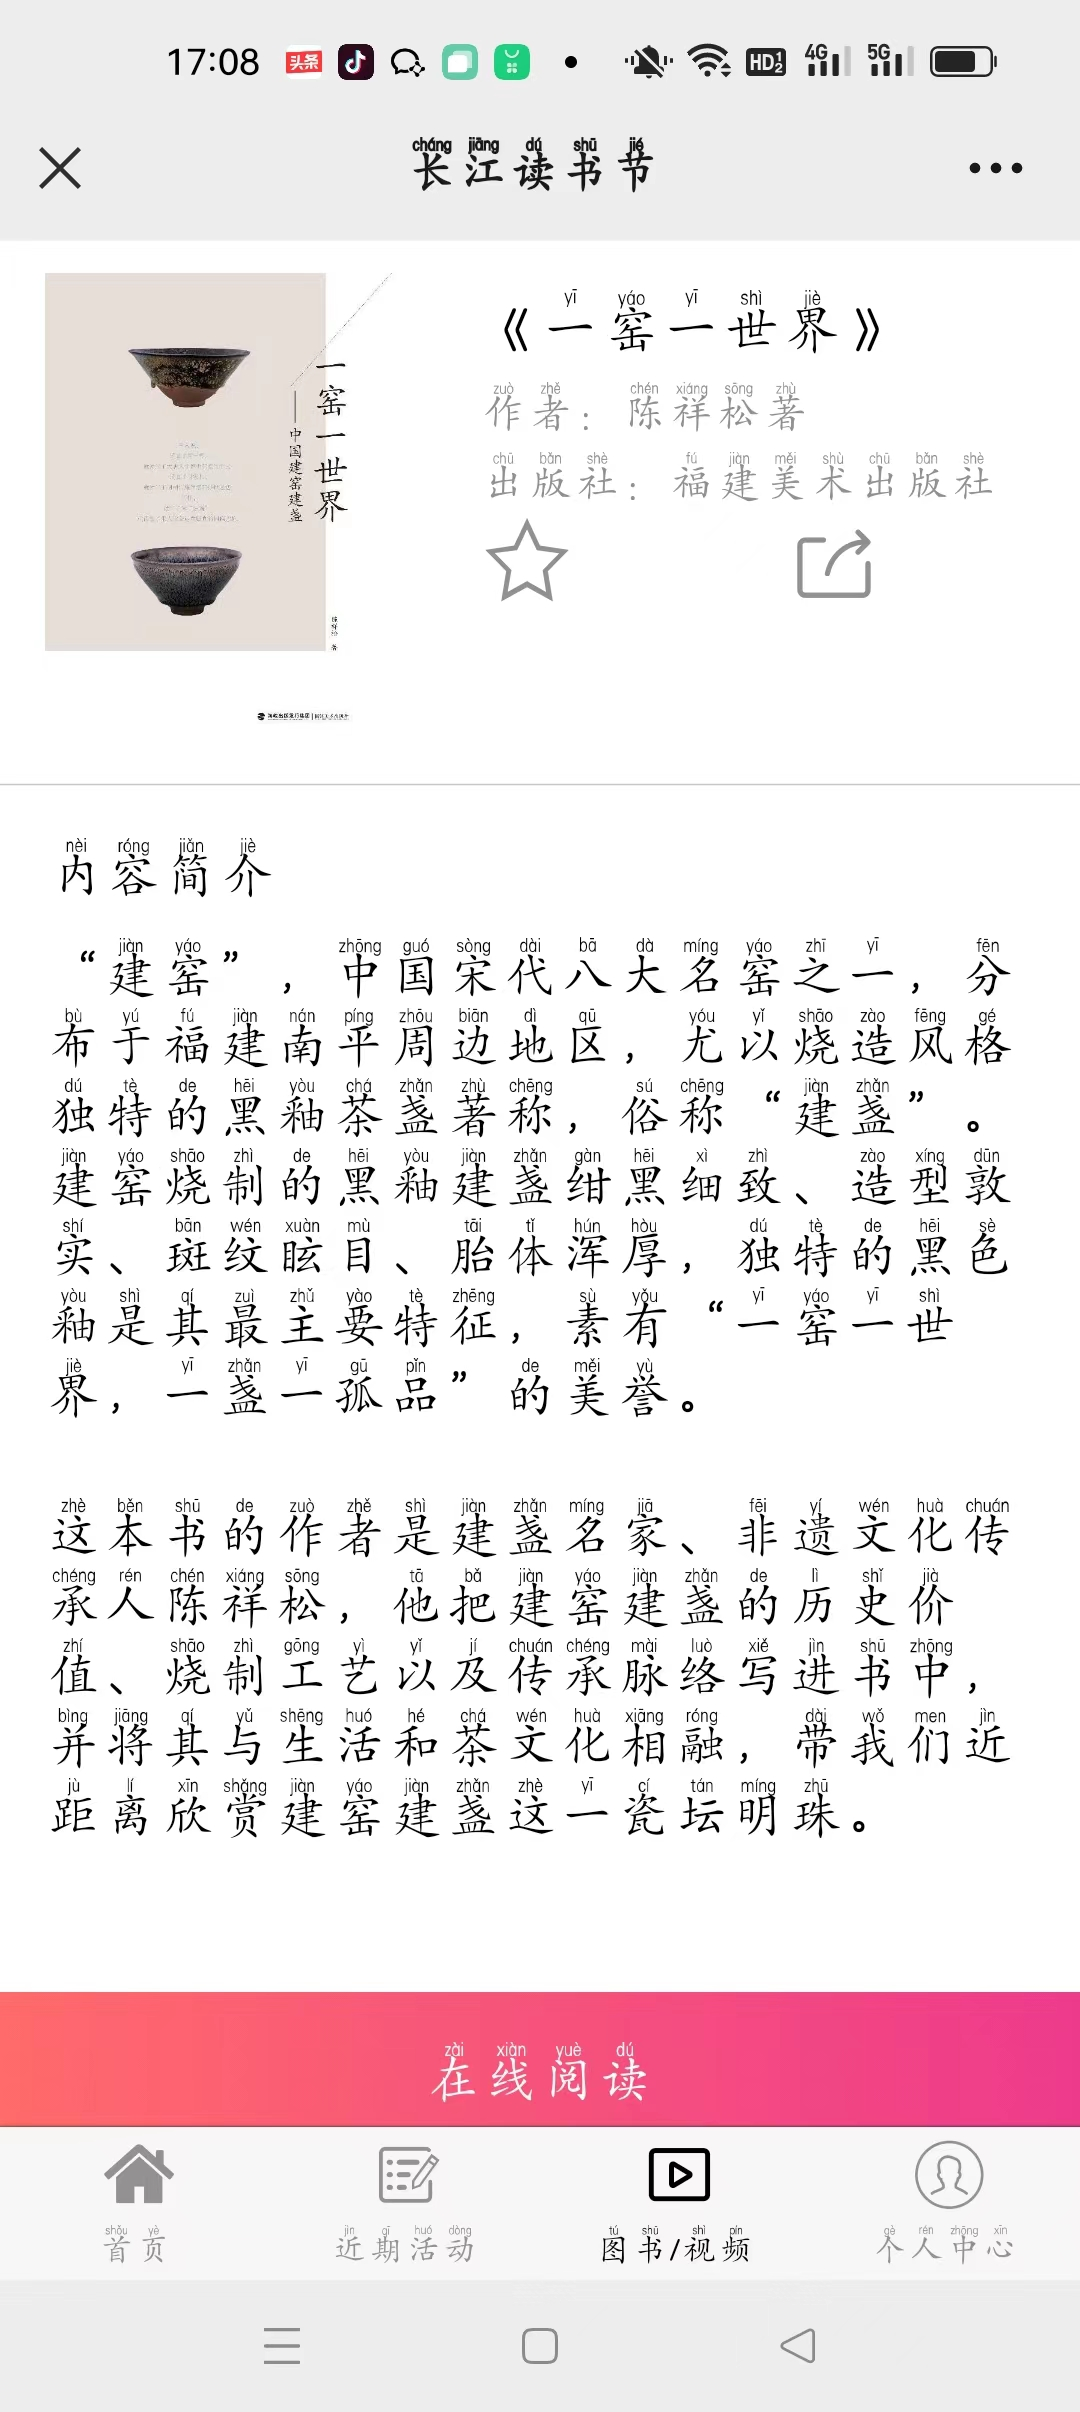 17:08
头条
HD 1 2
4G
5G
长江读书节
《一窑一世界》
作者：陈祥松著
出版社：福建美术出版社
一窑一世界
——中国建窑建盏
陈祥松 著
内容简介
“建窑”，中国宋代八大名窑之一，分
布于福建南平周边地区，尤以烧造风格
独特的黑釉茶盏著称，俗称“建盏”。
建窑烧制的黑釉建盏绀黑细致、造型敦
实、斑纹眩目、胎体浑厚，独特的黑色
釉是其最主要特征，素有“一窑一世
界，一盏一孤品”的美誉。
这本书的作者是建盏名家、非遗文化传
承人陈祥松，他把建窑建盏的历史价
值、烧制工艺以及传承脉络写进书中，
并将其与生活和茶文化相融，带我们近
距离欣赏建窑建盏这一瓷坛明珠。
在线阅读
首页
近期活动
图书/视频
个人中心